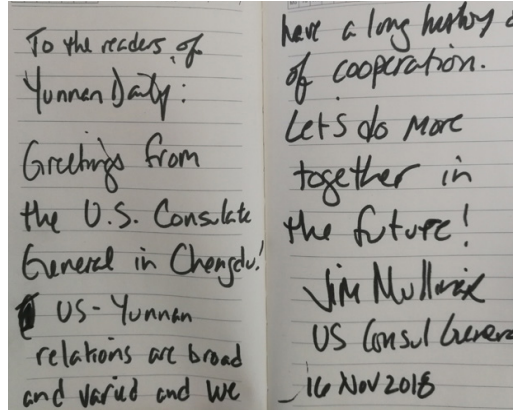 To the readers of
Yunnan Daily:
Greetings from
the U.S. Consulate
General in Chengdu!
US-Yunnan
relations are broad
and varied and we
have a long history
of cooperation.
Let's do more
together in
the future!
Jim Mullinax
US Consul General
16 Nov 2018